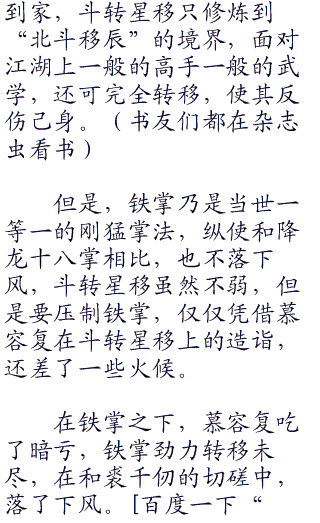 到家，斗转星移只修炼到
“北斗移辰”的境界，面对
江湖上一般的高手一般的武
学，还可完全转移，使其反
伤己身。（书友们都在杂志
虫看书）
但是，铁掌乃是当世一
等一的刚猛掌法，纵使和降
龙十八掌相比，也不落下
风，斗转星移虽然不弱，但
是要压制铁掌，仅仅凭借慕
容复在斗转星移上的造诣，
还差了一些火候。
在铁掌之下，慕容复吃
了暗亏，铁掌劲力转移未
尽，在和裘千仞的切磋中，
落了下风。[百度一下“